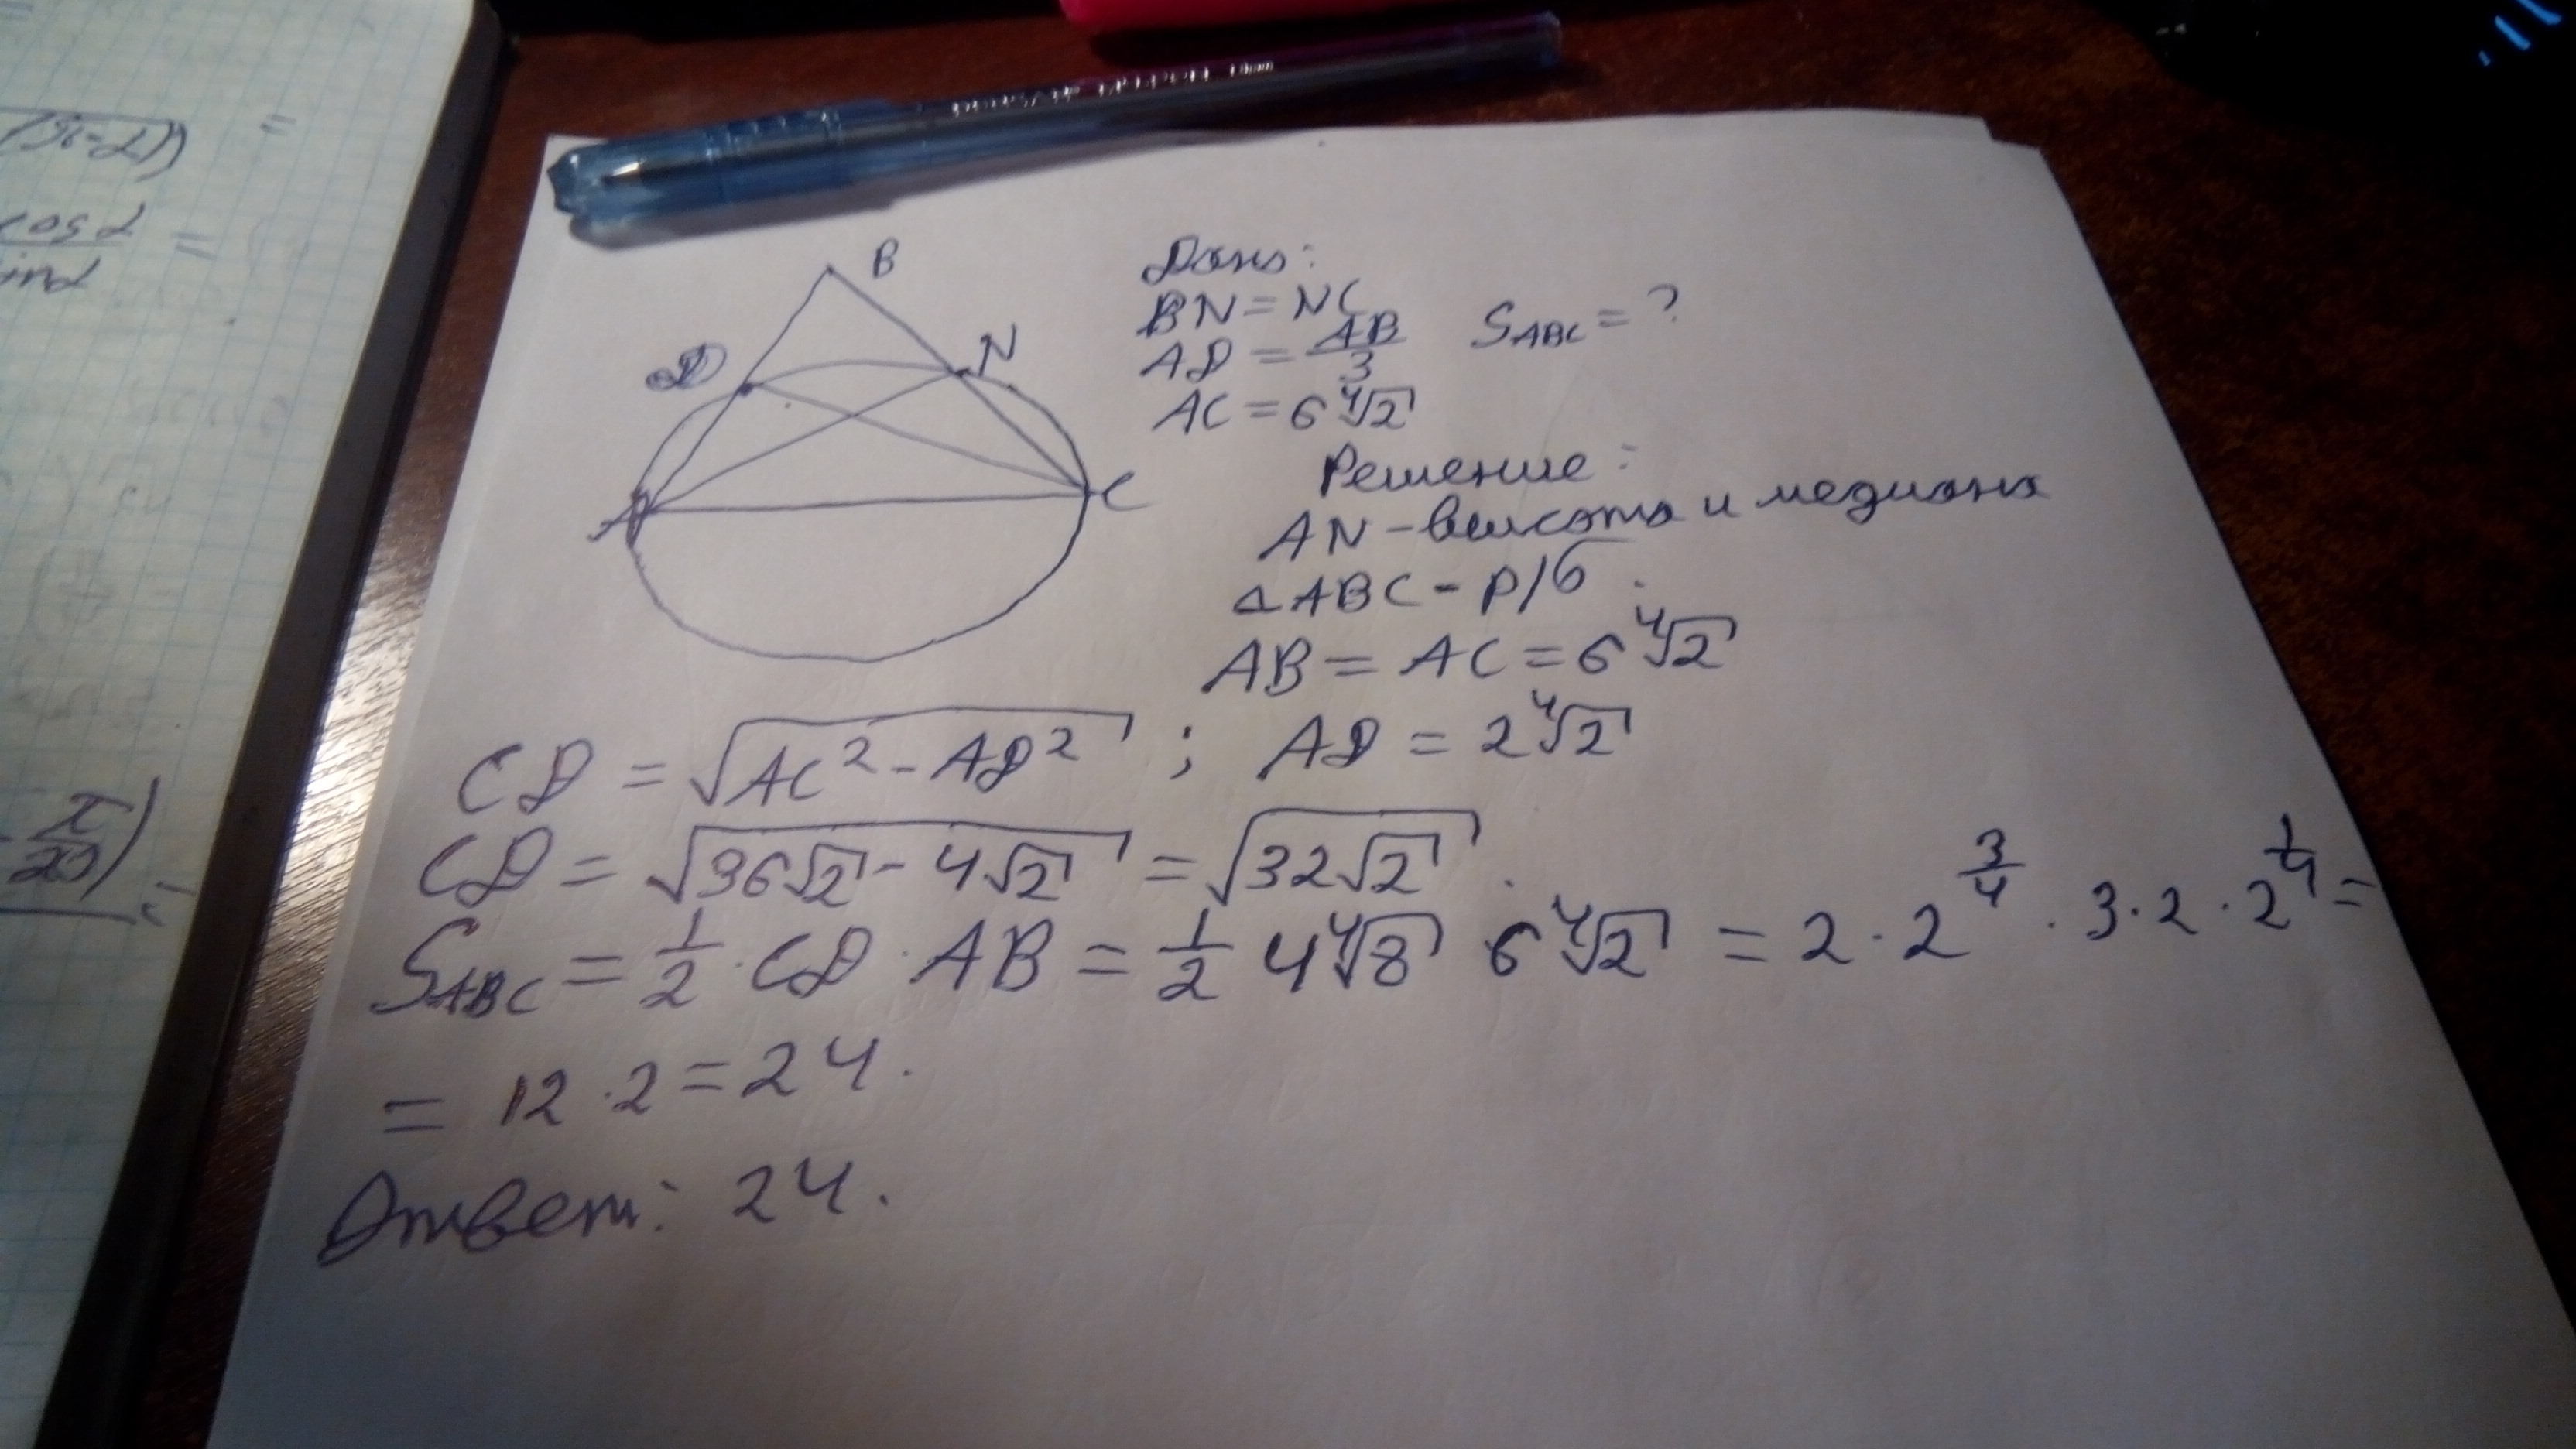 B
D
N
A
C
Дано:
BN = NC
AD = AB/3
S_ABC = ?
AC = 6∜2
Решение:
AN - высота и медиана
△ABC - р/б.
AB = AC = 6∜2
CD = √(AC² - AD²) ; AD = 2∜2
CD = √(36√2 - 4√2) = √(32√2).
S_ABC = 1/2 · CD · AB = 1/2 4∜8 · 6∜2 = 2 · 2^(3/4) · 3 · 2 · 2^(1/4) =
= 12 · 2 = 24.
Ответ: 24.
cos α
=